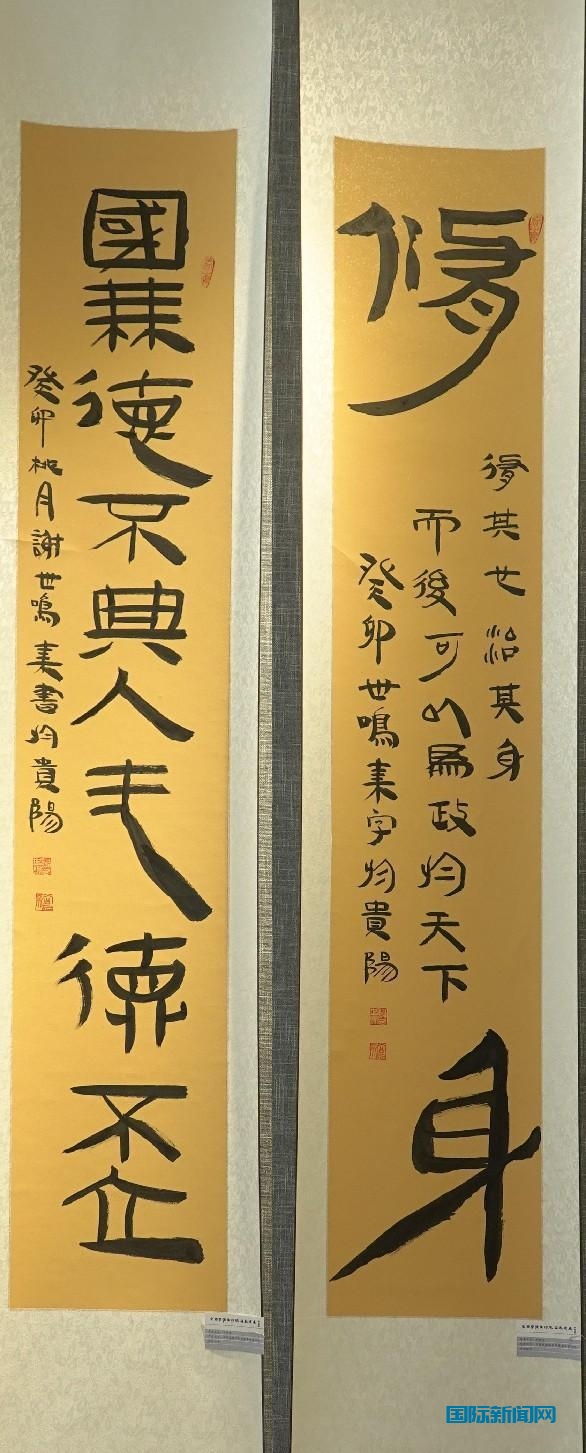 修身
修其心治其身
而後可以為政於天下
癸卯世鳴隶字於貴陽
國無德不興人无德不立
癸卯桃月謝世鳴隶書於貴陽
国际新闻网